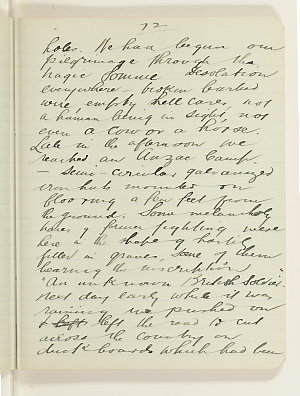 72
holes. We had begun our
pilgrimage through the
tragic Somme desolation
everywhere broken barbed
wire, empty shell cases, not
a human being in sight, not
even a cow or a horse.
Late in the afternoon we
reached an Anzac Camp.
— semi-circular galvanized
iron huts mounted on
flooring a few feet from
the ground. Some melancholy
notes of former fighting were
here in the shape of hastily
filled in graves, some of them
bearing the inscription
"An unknown British Soldier."
Next day early while it was
raining we pushed on
& left the road to cut
across the country on
duck boards which had been